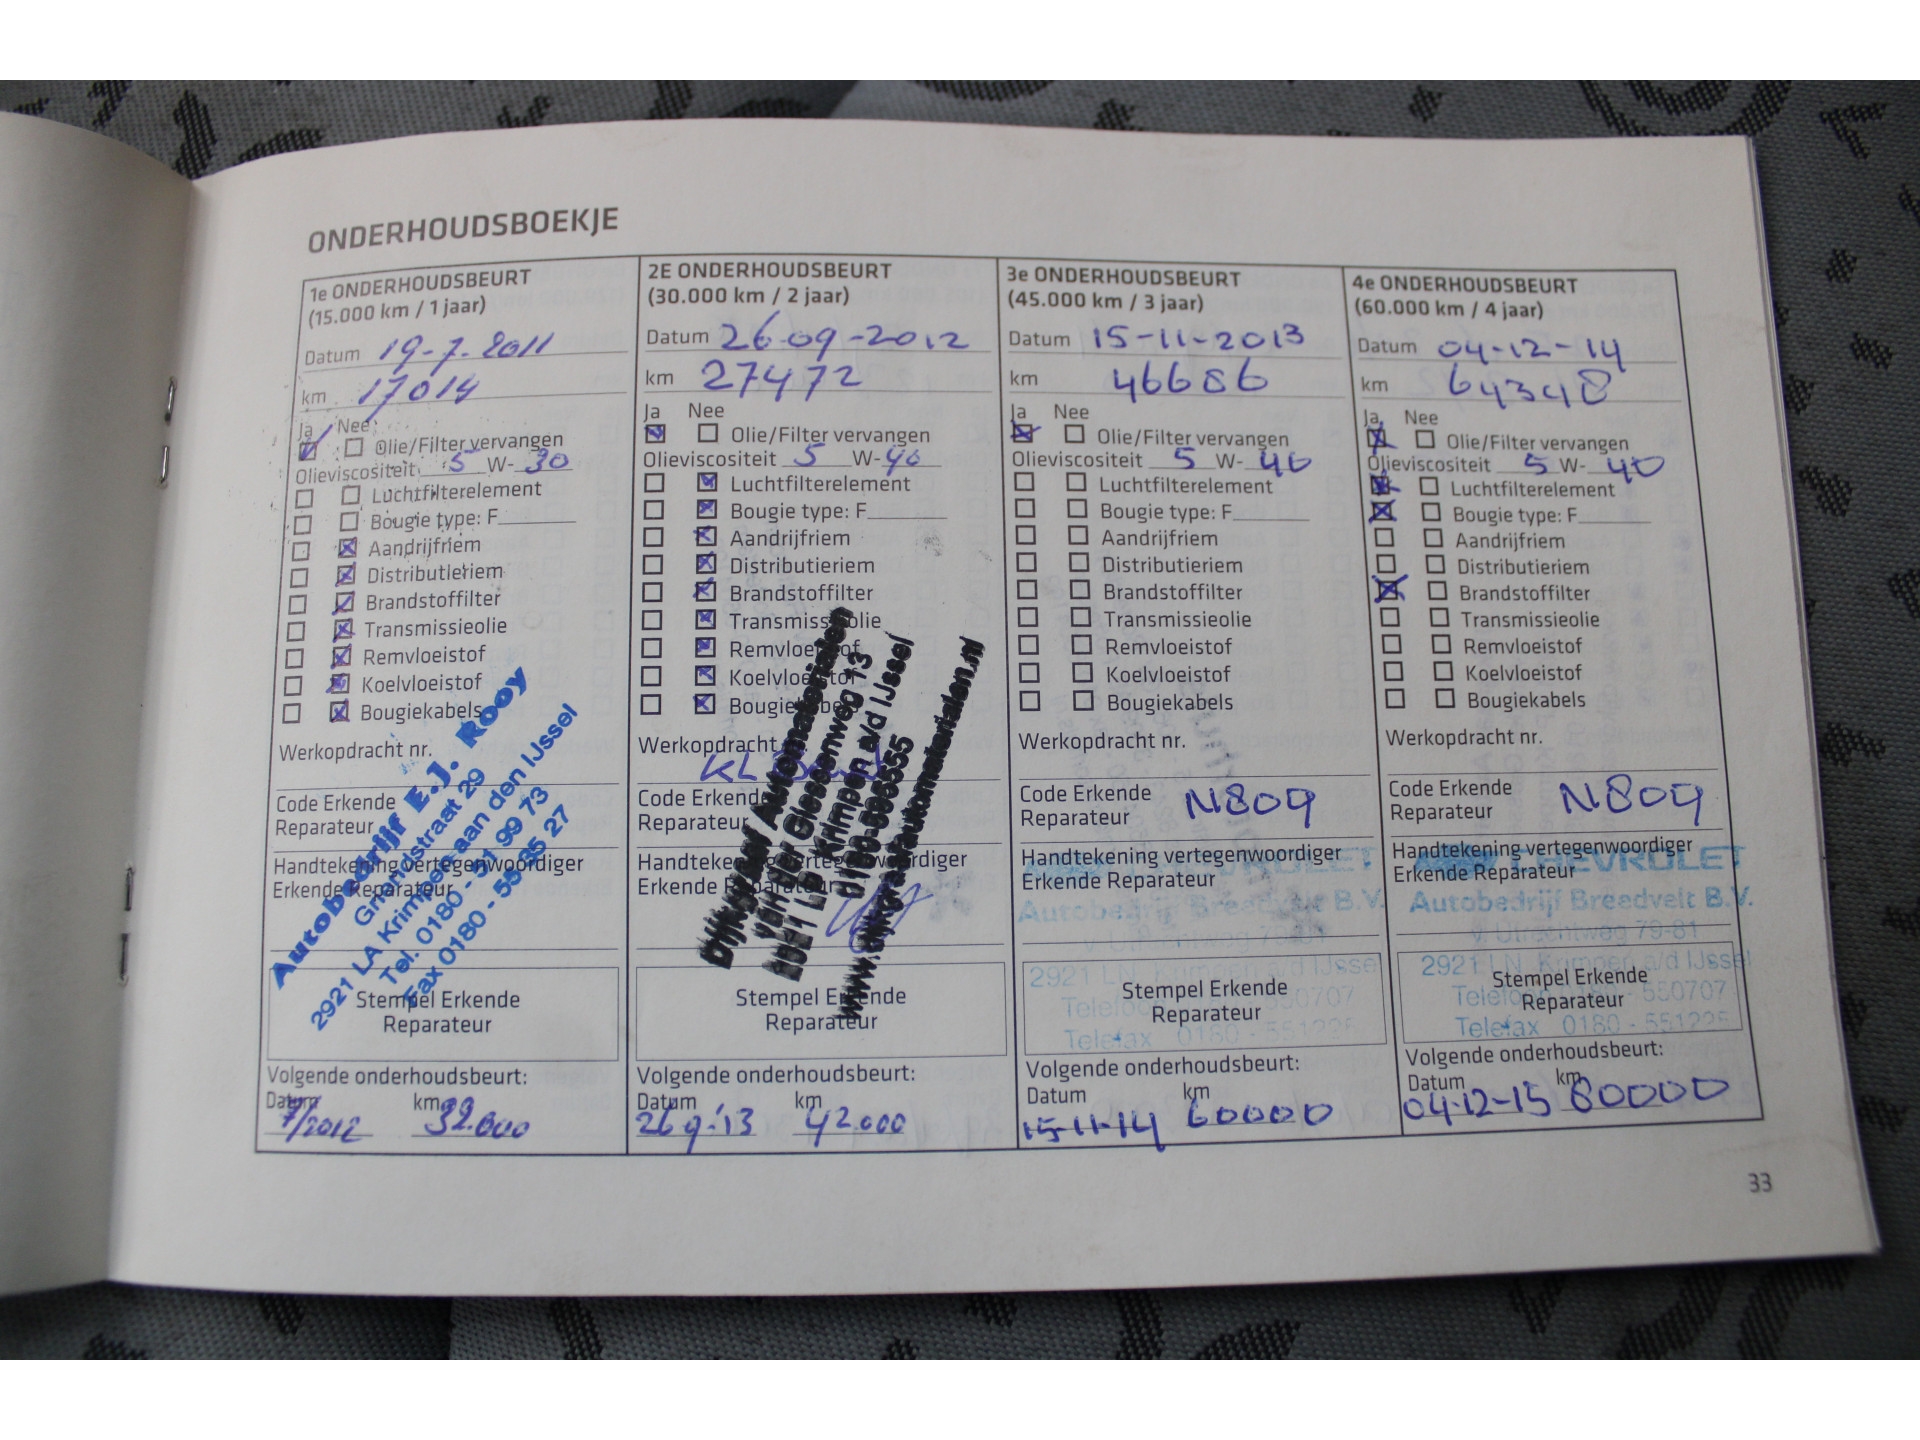 ONDERHOUDSBOEKJE
1e ONDERHOUDSBEURT
(15.000 km / 1 jaar)
Datum 19-7-2011
km 17014
Ja Nee
Olie/Filter vervangen
Olieviscositeit 5 W- 30
Luchtfilterelement
Bougie type: F
Aandrijfriem
Distributieriem
Brandstoffilter
Transmissieolie
Remvloeistof
Koelvloeistof
Bougiekabels
Werkopdracht nr.
Code Erkende
Reparateur
Handtekening vertegenwoordiger
Erkende Reparateur
Autobedrijf E.J. Rooy
Griendstraat 29
2921 LA Krimpen aan den IJssel
Tel. 0180 - 51 99 73
Fax 0180 - 55 35 27
Stempel Erkende
Reparateur
Volgende onderhoudsbeurt:
Datum km
7/2012 32.000
2E ONDERHOUDSBEURT
(30.000 km / 2 jaar)
Datum 26-09-2012
km 27472
Ja Nee
Olie/Filter vervangen
Olieviscositeit 5 W- 40
Luchtfilterelement
Bougie type: F
Aandrijfriem
Distributieriem
Brandstoffilter
Transmissieolie
Remvloeistof
Koelvloeistof
Bougiekabels
Werkopdracht nr.
KL
Code Erkende
Reparateur
Handtekening vertegenwoordiger
Erkende Reparateur
Dijkgraaf Automaterialen
Giessenweg 13
Krimpen a/d IJssel
www.dijkgraafautomaterialen.nl
Stempel Erkende
Reparateur
Volgende onderhoudsbeurt:
Datum km
26 9-'13 42.000
3e ONDERHOUDSBEURT
(45.000 km / 3 jaar)
Datum 15-11-2013
km 46686
Ja Nee
Olie/Filter vervangen
Olieviscositeit 5 W- 40
Luchtfilterelement
Bougie type: F
Aandrijfriem
Distributieriem
Brandstoffilter
Transmissieolie
Remvloeistof
Koelvloeistof
Bougiekabels
Werkopdracht nr.
Code Erkende
Reparateur N809
Handtekening vertegenwoordiger
Erkende Reparateur
CHEVROLET
Autobedrijf Breedvelt B.V.
v. Utrechtweg 79-81
2921 LN Krimpen a/d IJssel
Telefoon 0180 - 550707
Telefax 0180 - 551225
Stempel Erkende
Reparateur
Volgende onderhoudsbeurt:
Datum km
15-11-14 60000
4e ONDERHOUDSBEURT
(60.000 km / 4 jaar)
Datum 04-12-14
km 64348
Ja Nee
Olie/Filter vervangen
Olieviscositeit 5 W- 40
Luchtfilterelement
Bougie type: F
Aandrijfriem
Distributieriem
Brandstoffilter
Transmissieolie
Remvloeistof
Koelvloeistof
Bougiekabels
Werkopdracht nr.
Code Erkende
Reparateur N809
Handtekening vertegenwoordiger
Erkende Reparateur
CHEVROLET
Autobedrijf Breedvelt B.V.
v. Utrechtweg 79-81
2921 LN Krimpen a/d IJssel
Telefoon 0180 - 550707
Telefax 0180 - 551225
Stempel Erkende
Reparateur
Volgende onderhoudsbeurt:
Datum km
04-12-15 80000
33